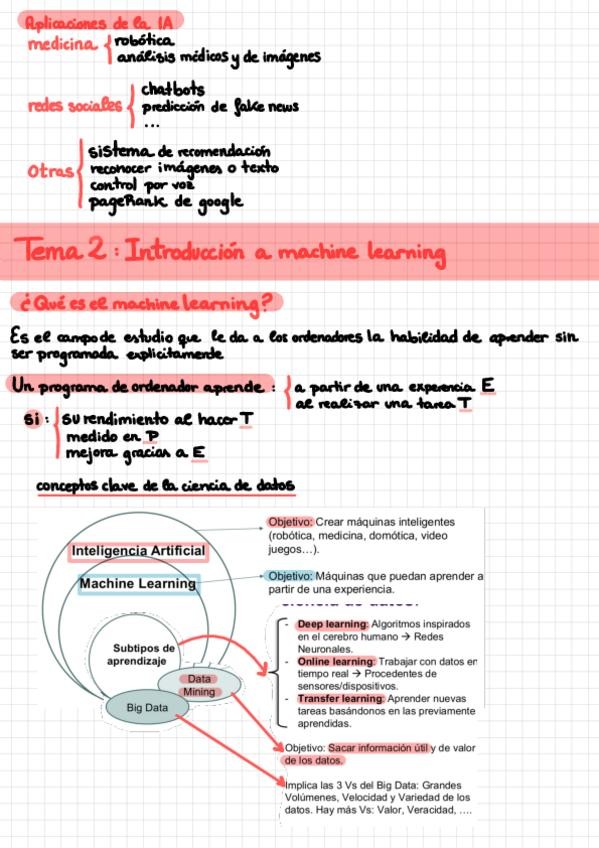 Aplicaciones de la IA
medicina
robótica
análisis médicos y de imágenes
redes sociales
chatbots
predicción de fake news
...
Otras
sistema de recomendación
reconocer imágenes o texto
control por voz
pageRank de google
Tema 2: Introducción a machine learning
¿Qué es el machine learning?
Es el campo de estudio que le da a los ordenadores la habilidad de aprender sin
ser programada explicitamente
Un programa de ordenador aprende:
a partir de una experencia E
al realizar una tarea T
si:
su rendimiento al hacer T
medido en P
mejora gracias a E
conceptos clave de la ciencia de datos
Inteligencia Artificial
Objetivo: Crear máquinas inteligentes
(robótica, medicina, domótica, video
juegos…).
Machine Learning
Objetivo: Máquinas que puedan aprender a
partir de una experiencia.
ciencia de datos.
Subtipos de
aprendizaje
- Deep learning: Algoritmos inspirados
en el cerebro humano → Redes
Neuronales.
- Online learning: Trabajar con datos en
tiempo real → Procedentes de
sensores/dispositivos.
- Transfer learning: Aprender nuevas
tareas basándonos en las previamente
aprendidas.
Data
Mining
Big Data
Objetivo: Sacar información útil y de valor
de los datos.
Implica las 3 Vs del Big Data: Grandes
Volúmenes, Velocidad y Variedad de los
datos. Hay más Vs: Valor, Veracidad, ….